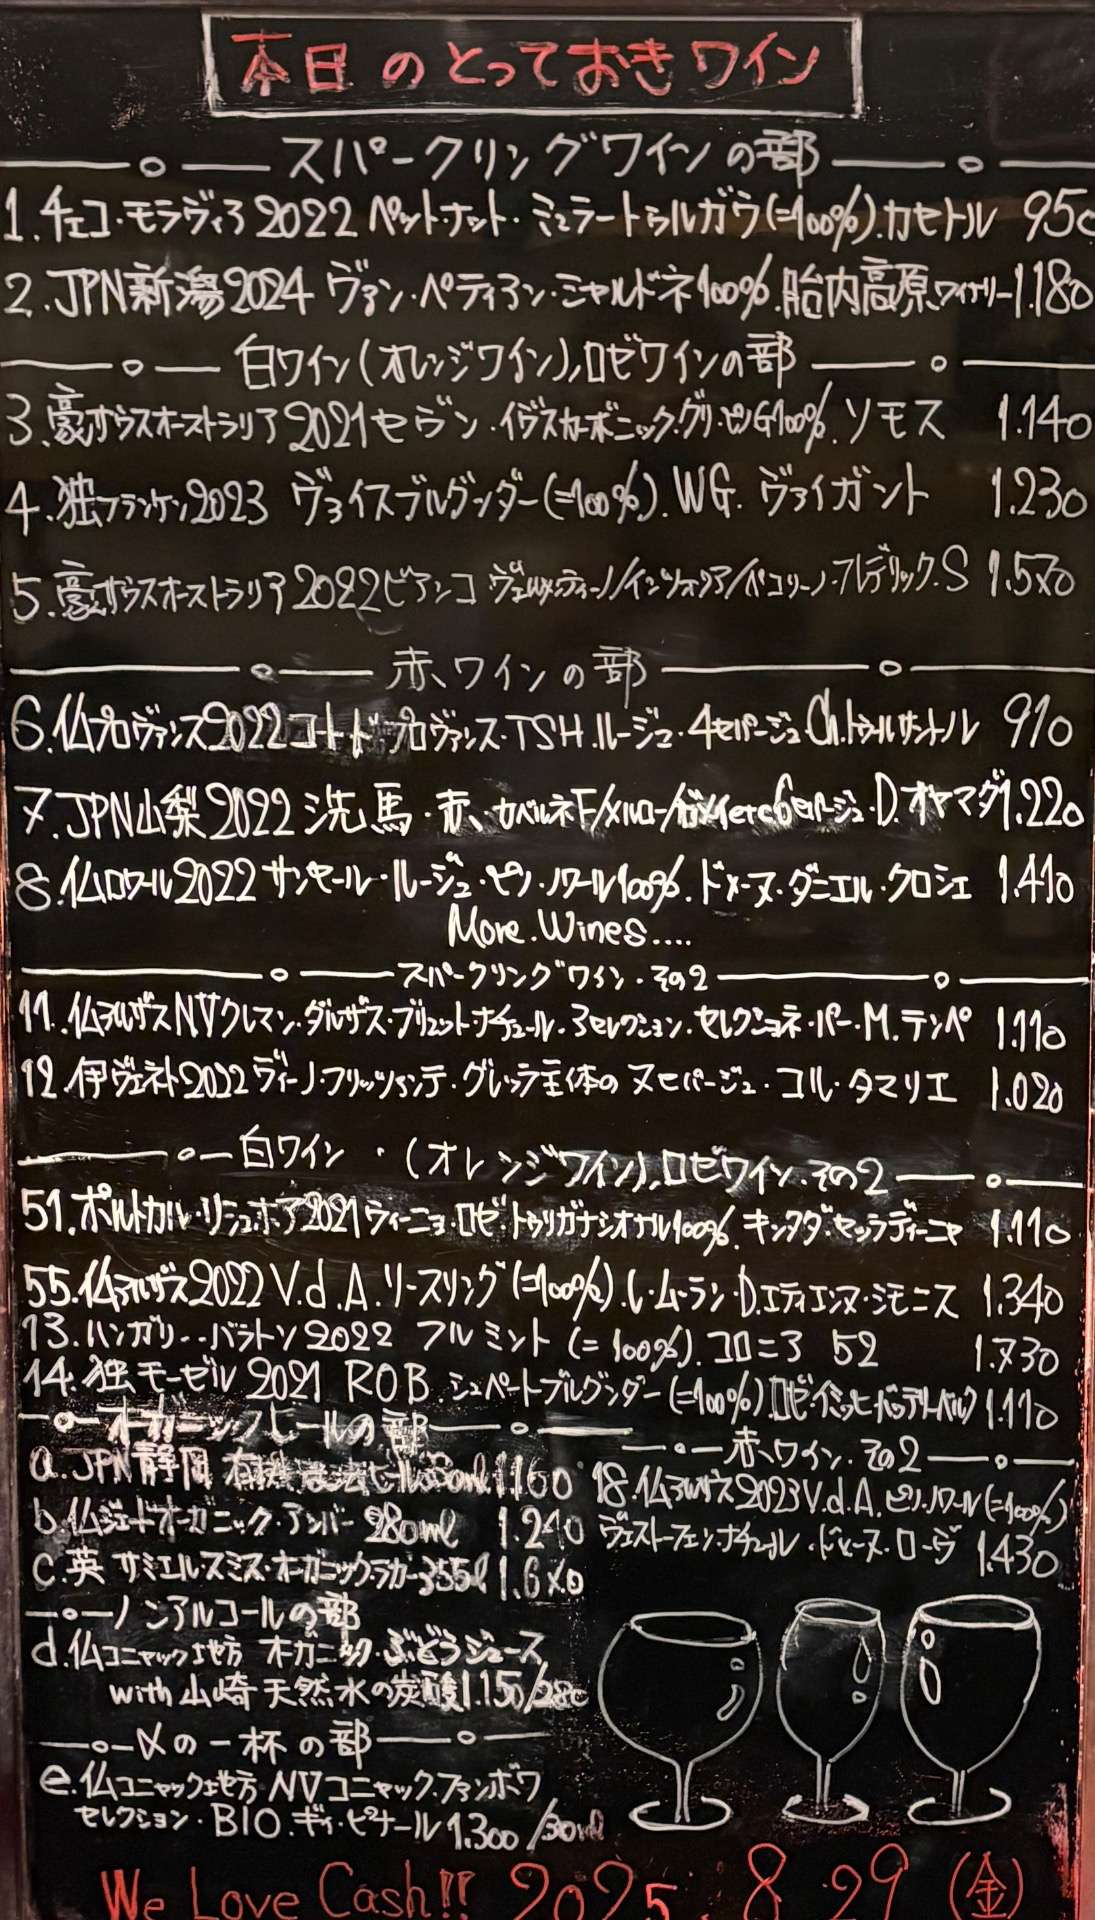 本日のとっておきワイン
スパークリングワインの部
1.チェコ・モラヴィア2022 ペット・ナット・ミュラートゥルガウ(=100%).カセトル 950
2.JPN新潟2024 ヴァン・ペティアン・シャルドネ100%.胎内高原ワイナリー1.180
白ワイン(オレンジワイン),ロゼワインの部
3.豪サウスオーストラリア2021セヴン・イヴスカーボニック・グリ・ピノG100%.ソモス 1.140
4.独フランケン2023 ヴァイスブルグンダー(=100%).WG.ヴァイガント 1.230
5.豪サウスオーストラリア2022ビアンコ ヴェルメンティーノ/インツォリア/ペコリーノ.フレデリック.S 1.570
赤ワインの部
6.仏プロヴァンス2022コートドプロヴァンス・TSH.ルージュ・4セパージュ.Ch.トゥールサントノレ 910
7.JPN山梨2022 洗馬・赤・カベルネF/メルロー/etc6セパージュ・D.オヤマダ1.220
8.仏ロワール2022サンセール・ルージュ・ピノ・ノワール100%.ドメーヌ・ダニエル・クロシェ 1.410
More.Wines....
スパークリングワイン.その2
11.仏アルザスNVクレマン・ダルザス・ブリュットナチュール・3セレクション・セレクショネ・パー・M.テンペ 1.110
12.伊ヴェネト2022ヴィーノ・フリッツァンテ・グレッラ主体の7セパージュ・コル・タマリエ 1.020
白ワイン・(オレンジワイン),ロゼワイン.その2
51.ポルトガル・リシュボア2021ヴィーニョ・ロゼ・トゥリガナシオナル100%.キンタダ・セッラディーニャ 1.110
55.仏アルザス2022 V.d.A.リースリング(=100%).L・ムーラン・D.エティエンヌ・シモニス 1.340
13.ハンガリー・バラトン2022 フルミント(=100%).コロニ3 52 1.730
14.独モーゼル2021 ROB.シュペートブルグンダー(=100%)ロゼ 1.110
オーガニックビールの部
a.JPN静岡 有機 ビール 1.160
b.仏ジェードオーガニック・アンバー 280ml 1.210
c.英 サミエルスミス・オーガニックラガー355ml 1.670
ノンアルコールの部
d.仏コニャック地方 オーガニック・ぶどうジュース
with 山崎 天然水の炭酸1.150/280
赤ワイン.その2
18.仏アルザス2023V.d.A.ピノ.ノワール(=100%)
ヴェストーフェン・ナチュール・ドメーヌ・ローヴ 1.430
〆の一杯の部
e.仏コニャック地方 NVコニャック.ファンボワ
セレクション・BIO.ギィ・ピナール 1.300/30ml
We Love Cash!! 2025.8.29(金)